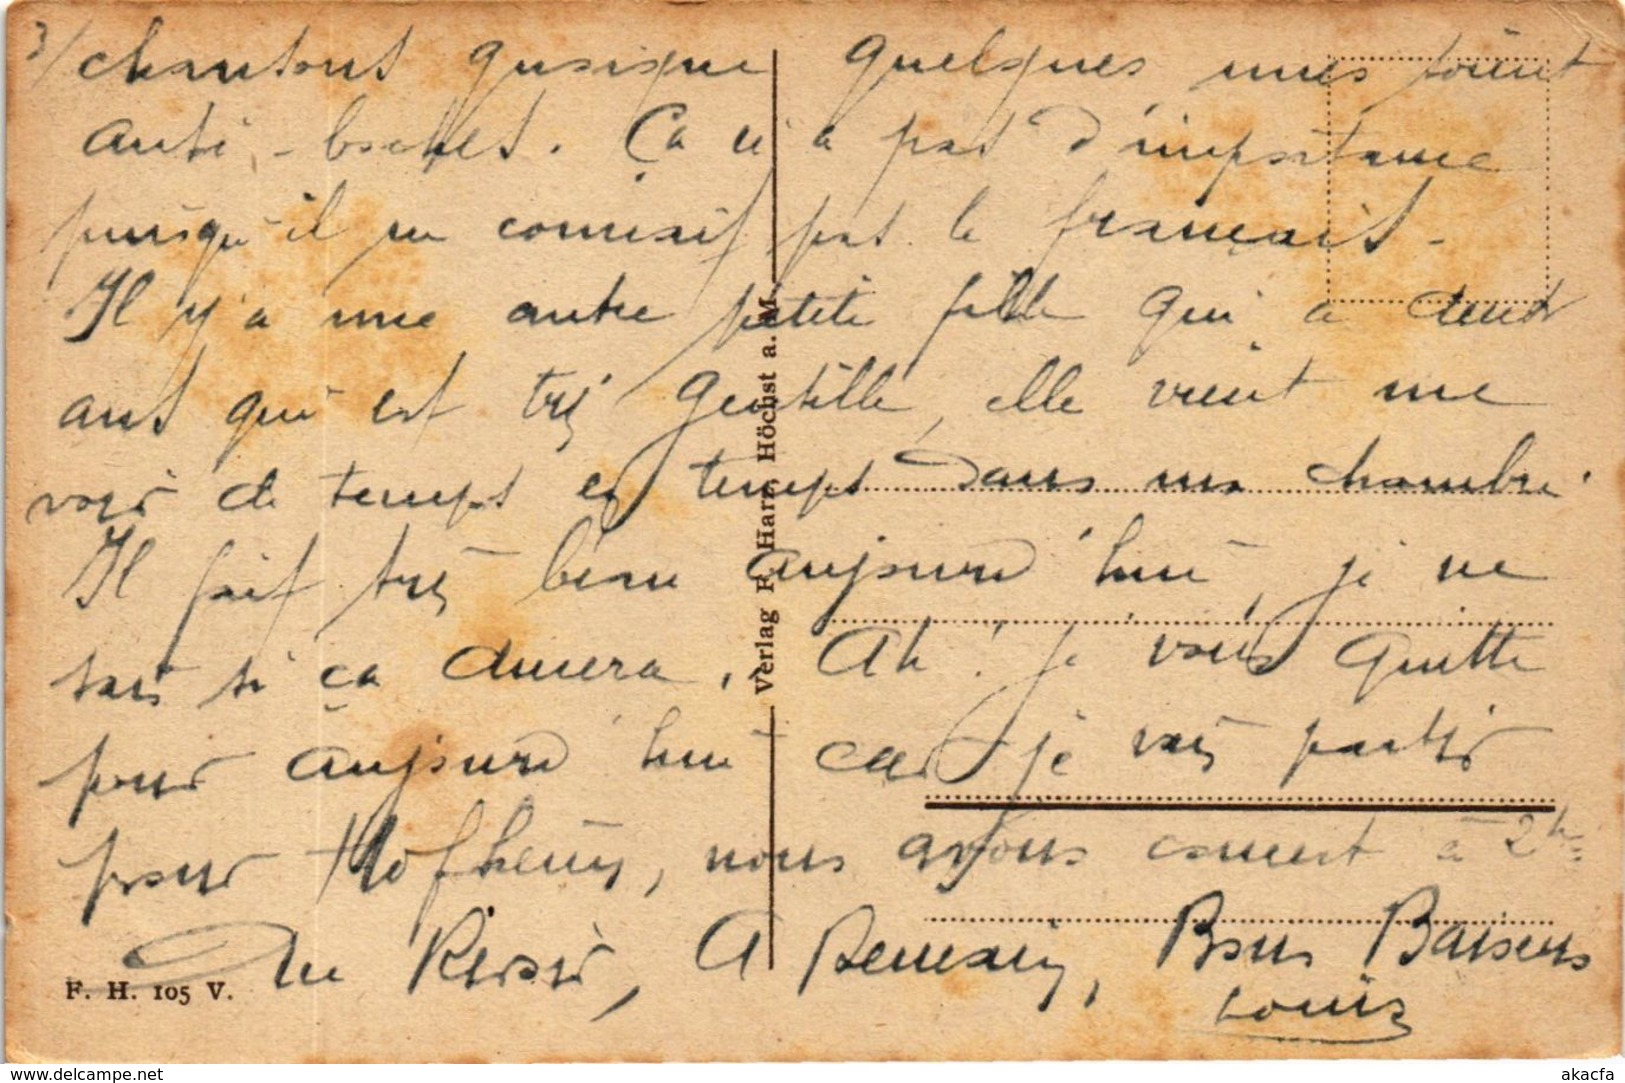 3/ chantons quoique quelques unes soient
anti-boches. Ça n'a pas d'importance
puisqu'il ne connait pas le français.
Il y'a une autre petite fille qui a
ans qui est très gentille, elle vient me
voir de temps en temps dans ma chambre.
Il fait très beau aujourd'hui, je ne
sais si ça durera. Ah! je vous quitte
pour aujourd'hui car je vais partir
pour Hofheim, nous avons concert à 2h
Au Revoir, A Demain, Bons Baisers
Louis
Verlag F. Harz, Höchst a. M.
F. H. 105 V.
www.delcampe.net
akacfa